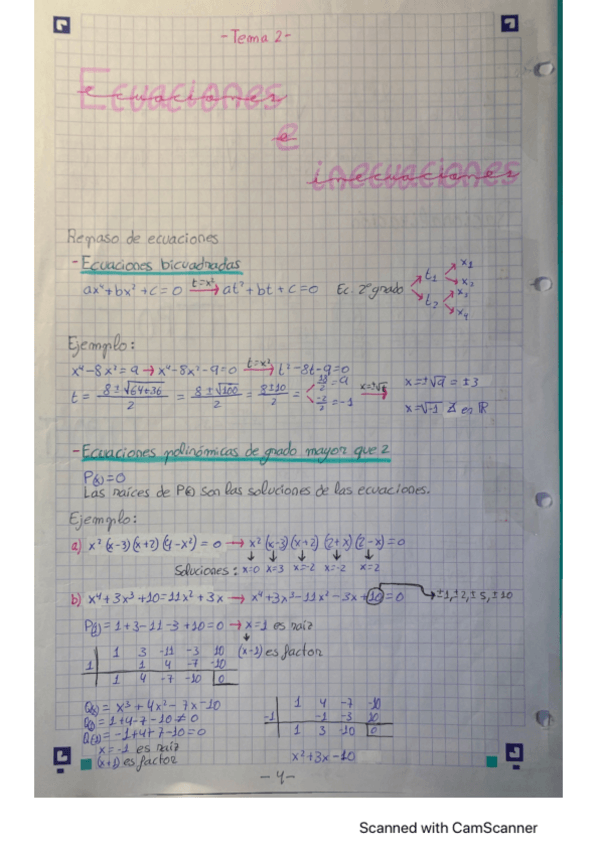 - Tema 2 -
Ecuaciones
e
inecuaciones
Repaso de ecuaciones
- Ecuaciones bicuadradas
ax⁴+bx²+c=0 t=x² → at²+bt+c=0 Ec. 2º grado t₁ x₁ x₂ t₂ x₃ x₄
Ejemplo:
x⁴-8x²=9 → x⁴-8x²-9=0 t=x² → t²-8t-9=0
t = 8±√64+36 / 2 = 8±√100 / 2 = 8±10 / 2 = 18/2 = 9 -2/2 = -1 x=±√t → x=±√9 = ±3
x=√-1 ∄ en ℝ
- Ecuaciones polinómicas de grado mayor que 2
P(x)=0
Las raíces de P(x) son las soluciones de las ecuaciones.
Ejemplo:
a) x²(x-3)(x+2)(4-x²)=0 → x²(x-3)(x+2)(2+x)(2-x)=0
Soluciones: x=0 x=3 x=-2 x=-2 x=2
b) x⁴+3x³+10=11x²+3x → x⁴+3x³-11x²-3x+10=0 → ±1,±2,±5,±10
P(1)=1+3-11-3+10=0 → x=1 es raíz
1 3 -11 -3 10 (x-1) es factor
1 1 4 -7 -10
1 4 -7 -10 0
Q(x)= x³+4x²-7x-10
Q(1)=1+4-7-10≠0
Q(-1)=-1+4+7-10=0
x=-1 es raíz
(x+1) es factor
1 4 -7 -10
-1 -1 -3 10
1 3 -10 0
x²+3x-10
- 4 -
Scanned with CamScanner